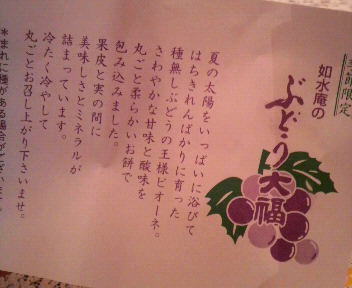 限定
如水庵の
ぶどう
大福
夏の太陽をいっぱいに浴びて
はちきれんばかりに育った
種無しぶどうの王様ピオーネ。
さわやかな甘味と酸味を
丸ごと柔らかいお餅で
包み込みました。
果皮と実の間に
美味しさとミネラルが
詰まっています。
冷たく冷やして
丸ごとお召し上がり下さいませ。
*まれに種がある場合がございます。